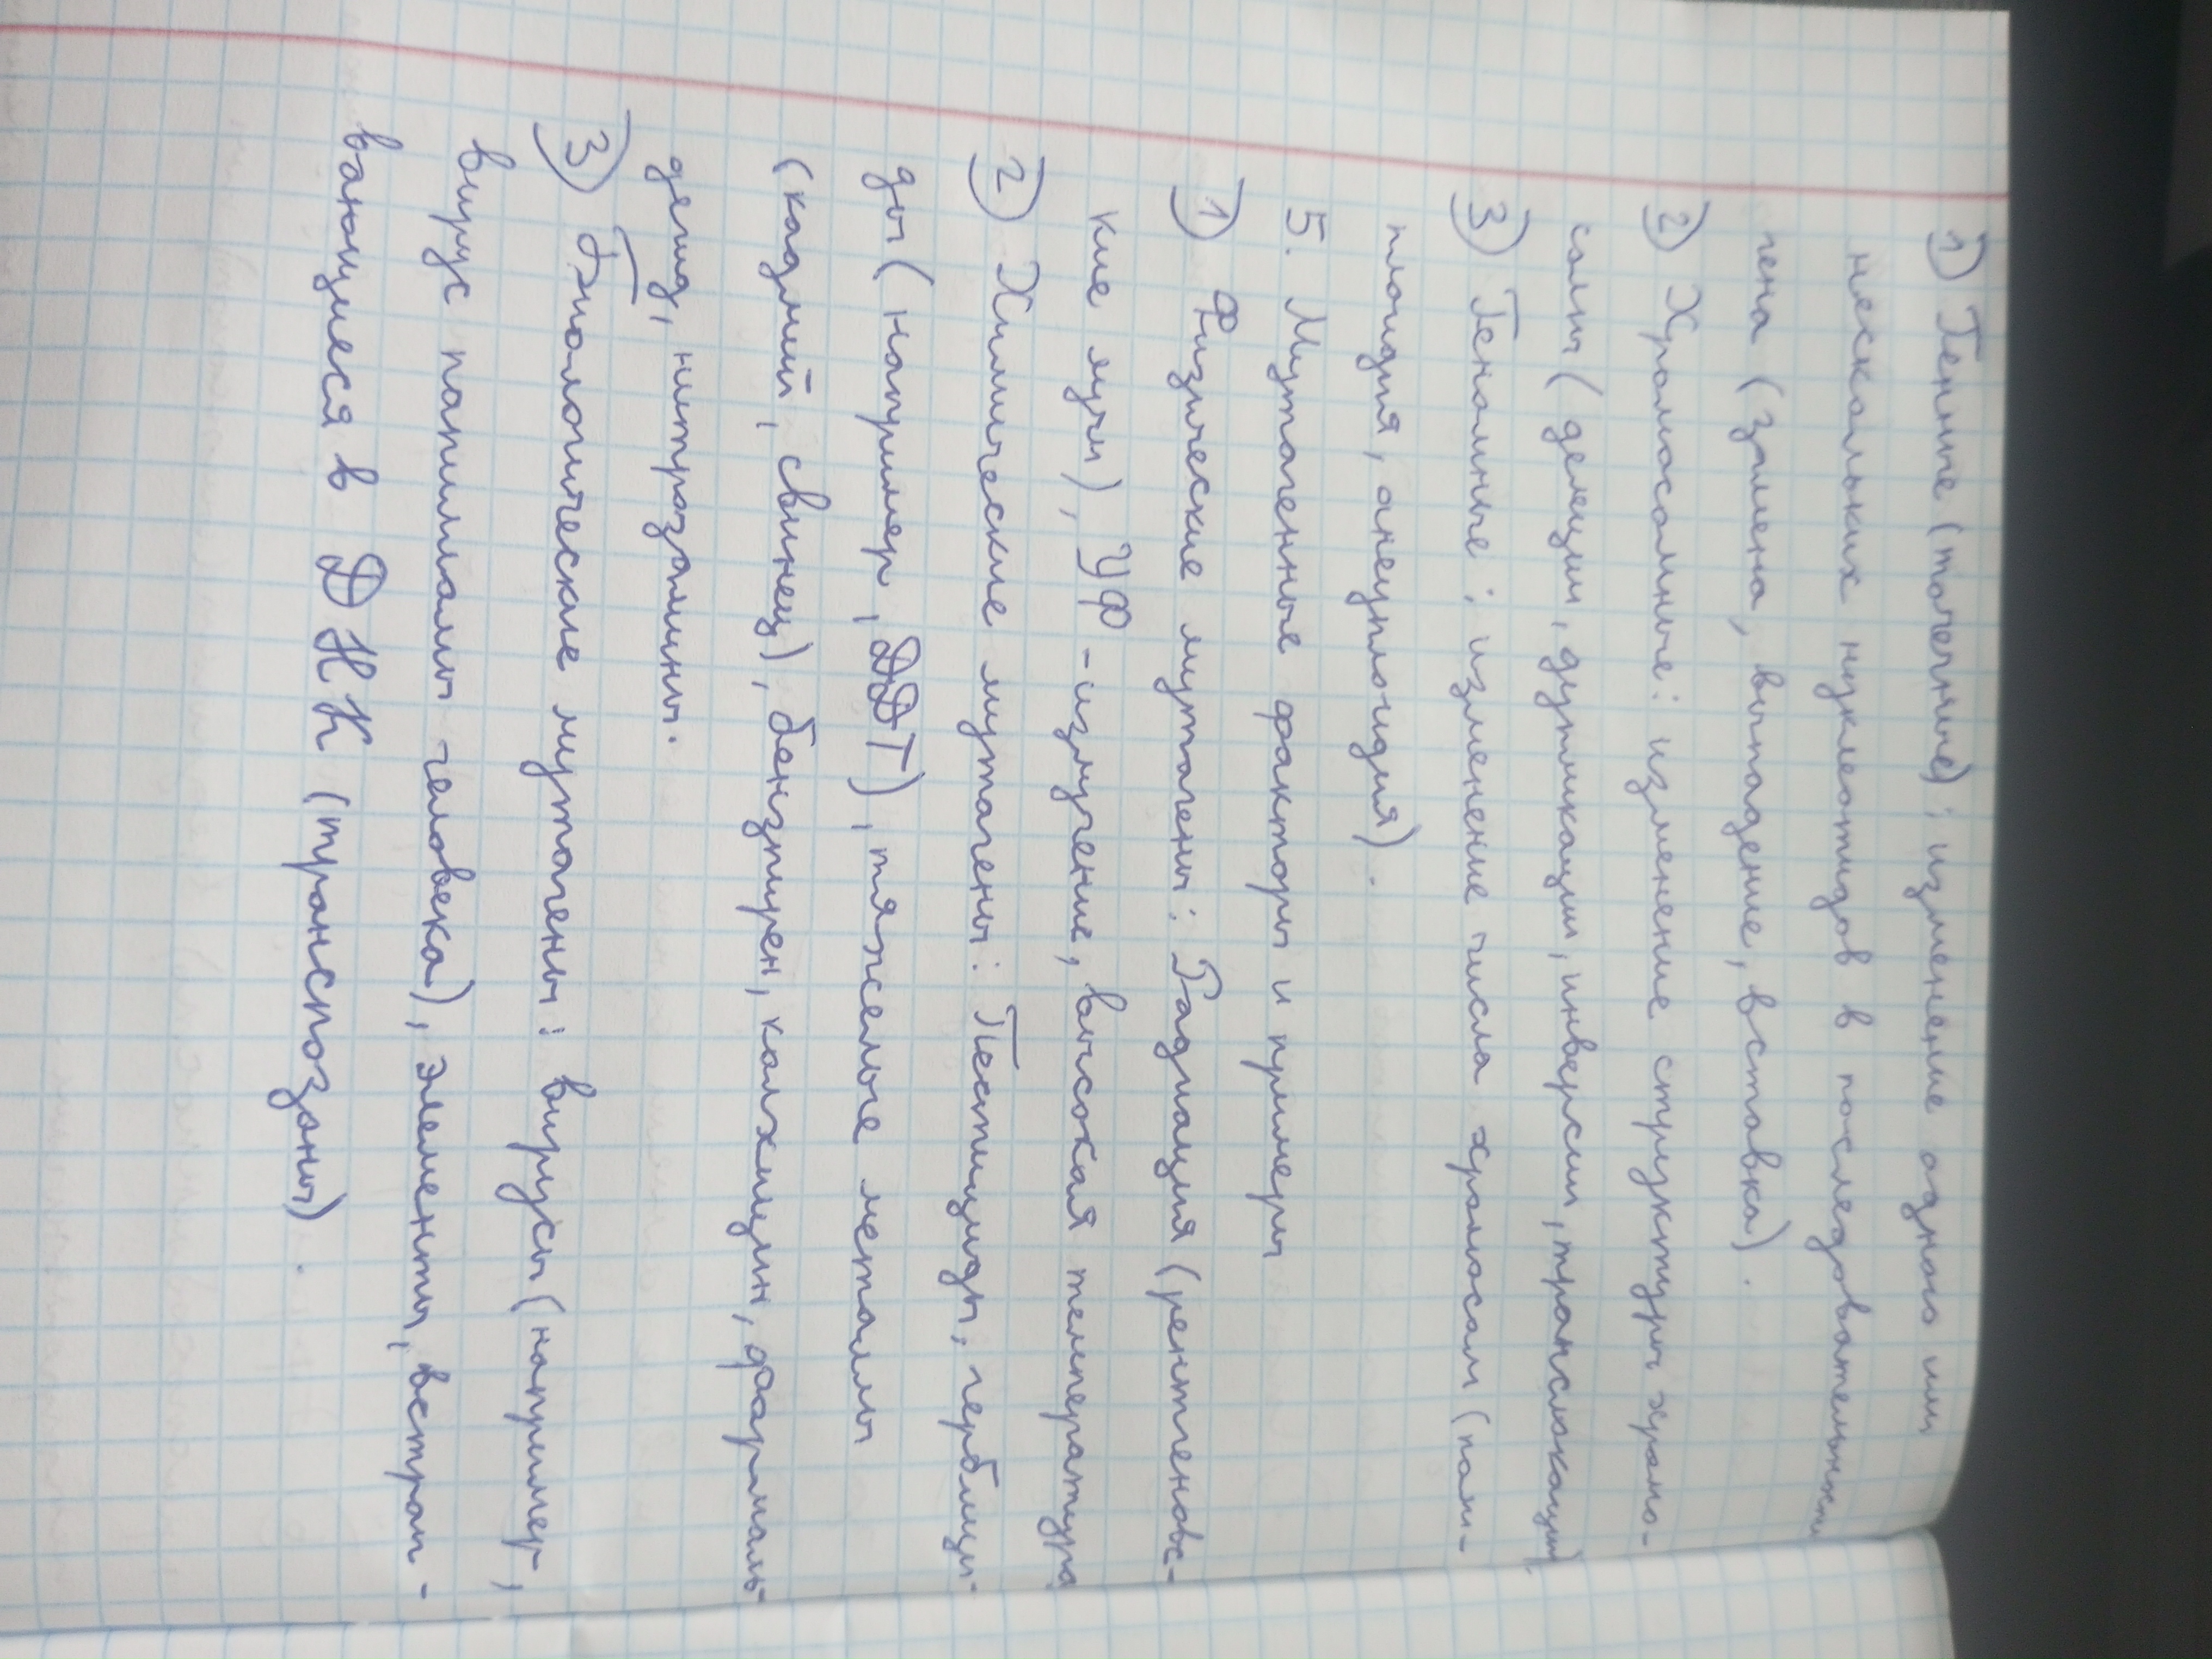 1) Генные (точечные): изменение одного или
нескольких нуклеотидов в последовательности
гена (замена, выпадение, вставка).
2) Хромосомные: изменение структуры хромо-
сомы (делеции, дупликации, инверсии, транслокации)
3) Геномные: изменение числа хромосом (поли-
плоидия, анеуплоидия).
5. Мутагенные факторы и примеры
1) Физические мутагены: Радиация (рентгеновс-
кие лучи), УФ-излучение, высокая температура
2) Химические мутагены: Пестициды, гербици-
ды (например, ДДТ), тяжелые металлы
(кадмий, свинец), бензпирен, колхицин, формаль-
дегид, нитрозамины.
3) Биологические мутагены: вирусы (например,
вирус папилломы человека), элементы, встраи-
вающиеся в ДНК (транспозоны).